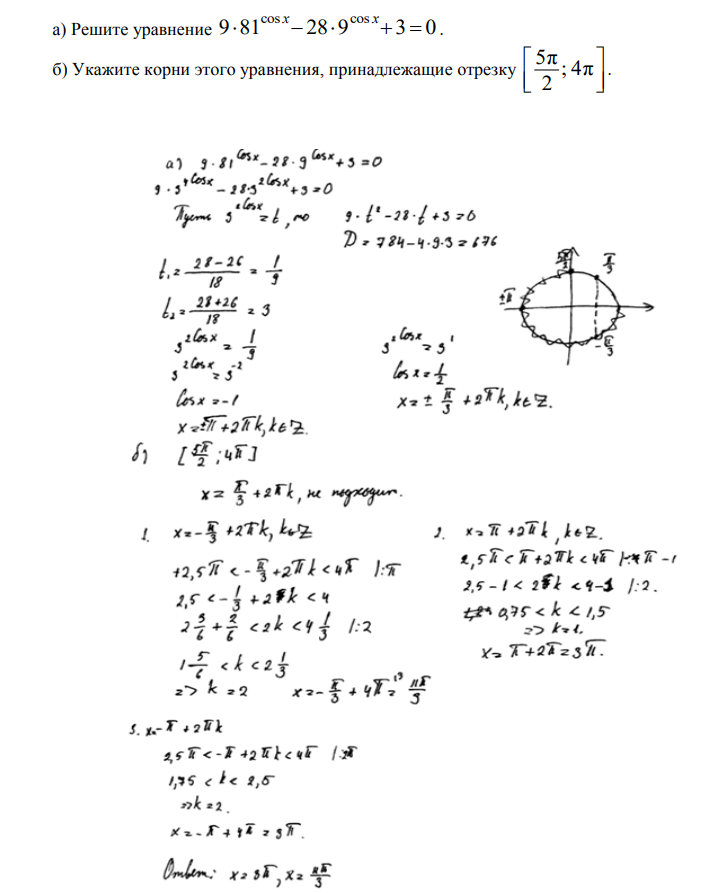 а) Решите уравнение 9·81^{cos x} − 28·9^{cos x} + 3 = 0.
б) Укажите корни этого уравнения, принадлежащие отрезку [5π/2; 4π].
а) 9·81^{cos x} − 28·9^{cos x} + 3 = 0
9·3^{4cos x} − 28·3^{2cos x} + 3 = 0
Пусть 3^{2cos x} = t, то 9·t² − 28·t + 3 = 0
D = 784 − 4·9·3 = 676
t₁ = (28 − 26)/18 = 1/9
t₂ = (28 + 26)/18 = 3
5π/2 π/3
±π
−π/3
3^{2cos x} = 1/9 3^{2cos x} = 3¹
3^{2cos x} = 3^{−2} cos x = 1/2
cos x = −1 x = ± π/3 + 2πk, k∈Z.
x = ±π + 2πk, k∈Z.
б) [5π/2; 4π]
x = π/3 + 2πk, не подходит.
1. x = −π/3 + 2πk, k∈Z
+2,5π < −π/3 + 2πk < 4π |:π
2,5 < −1/3 + 2k < 4
2 3/6 + 2/6 < 2k < 4 1/3 |:2
1 5/6 < k < 2 1/3
=> k = 2 x = −π/3 + 4π = 11π/3
2. x = π + 2πk, k∈Z.
2,5π < π + 2πk < 4π |:π −1
2,5 − 1 < 2k < 4 − 1 |:2.
0,75 < k < 1,5
=> k = 1.
x = π + 2π = 3π.
3. x = −π + 2πk
2,5π < −π + 2πk < 4π |:2π
1,75 < k < 2,5
=> k = 2.
x = −π + 4π = 3π.
Ответ: x = 3π, x = 11π/3